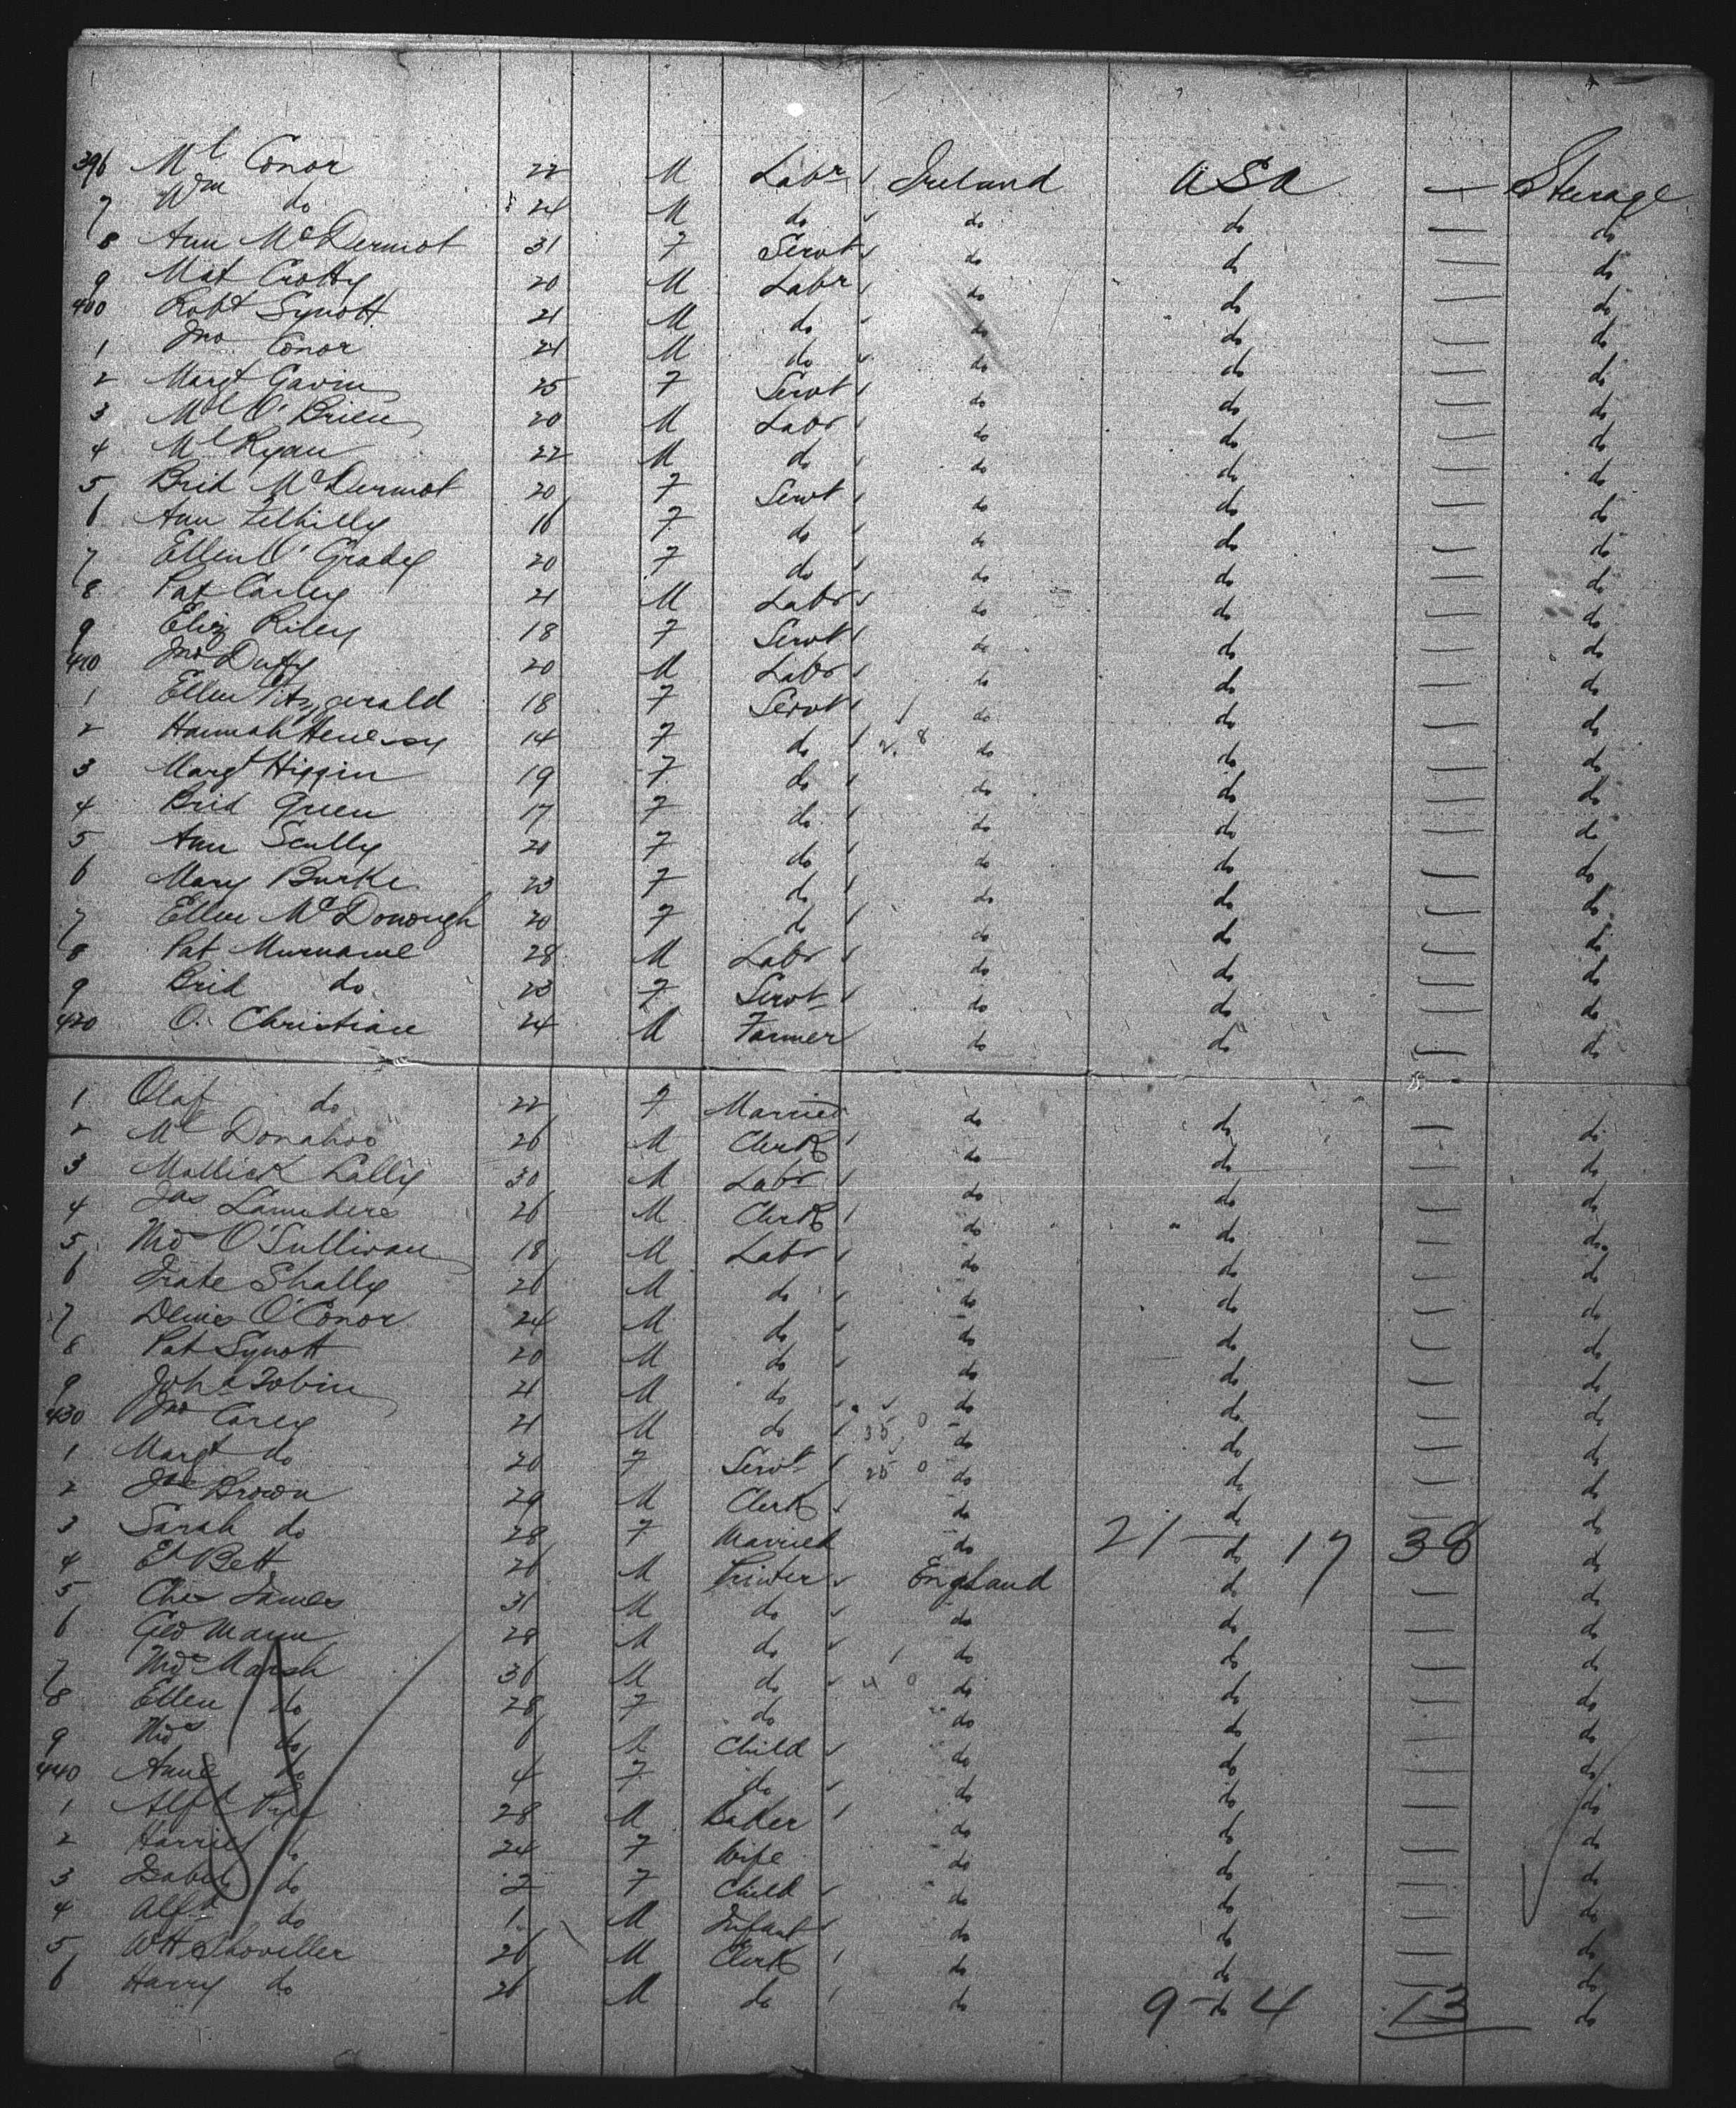 396 Ml Conor 22 M Labr Ireland USA — Steerage
7 Wm do 24 M do do do — do
8 Ann McDermot 31 F Servt do do — do
9 Mat Crotty 20 M Labr do do — do
400 Robt Synott 21 M do do do — do
1 Jno Conor 21 M do do do — do
2 Margt Gavin 25 F Servt do do — do
3 Ml O'Brien 20 M Labr do do — do
4 Ml Ryan 22 M do do do — do
5 Brid McDermot 20 F Servt do do — do
6 Ann 16 F do do do — do
7 Ellen O'Grady 20 F do do do — do
8 Pat Carley 21 M Labr do do — do
9 Eliz Riley 18 F Servt do do — do
410 Jno Duffy 20 M Labr do do — do
1 Ellen Fitzgerald 18 F Servt do do — do
2 Hannah Henessy 14 F do do do — do
3 Margt Higgin 19 F do do do — do
4 Brid Green 17 F do do do — do
5 Ann Scully 20 F do do do — do
6 Mary Burke 23 F do do do — do
7 Ellen McDonough 20 F do do do — do
8 Pat Murnane 28 M Labr do do — do
9 Brid do 23 F Servt do do — do
420 O. Christian 24 M Farmer do do — do
1 Olaf do 22 F Married do do — do
2 Ml Donahoo 26 M Clerk do do — do
3 Lally 30 M Labr do do — do
4 Jas 26 M Clerk do do — do
5 Thos O'Sullivan 18 M Labr do do — do
6 Shally 26 M do do do — do
7 Denis O'Conor 24 M do do do — do
8 Pat Synott 20 M do do do — do
9 John Tobin 21 M do do do — do
430 Jno Carey 21 M do do do — do
1 Margt do 20 F Servt do do — do
2 Jas Brown 29 M Clerk do do — do
3 Sarah do 28 F Married do 21 — do 17 38 do
4 Ed Bett 26 M Printer England do — do
5 Chas James 31 M do do do — do
6 Geo Mann 28 M do do do — do
7 Thos Marsh 36 M do do do — do
8 Ellen do 28 F do do do — do
9 Thos do 6 M Child do do — do
440 Anne do 4 F do do do — do
1 Alfd 28 M Baker do do — do
2 Harriet do 24 F Wife do do — do
3 Isabel do 2 F Child do do — do
4 Alfd do 1 M Infant do do — do
5 WH Shoveller 26 M Clerk do do — do
6 Harry do 26 M do do 9 — do 4 13 do